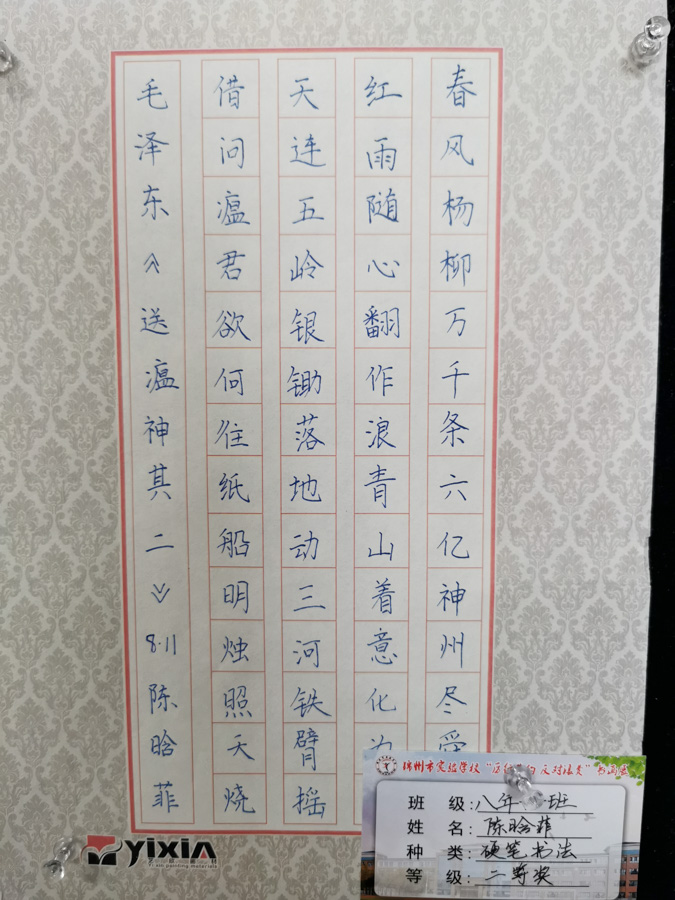 春风杨柳万千条六亿神州尽
红雨随心翻作浪青山着意化
天连五岭银锄落地动三河铁臂摇
借问瘟君欲何往纸船明烛照天烧
毛泽东《送瘟神其二》8·11陈晗菲
YIXIA
班 级:八年 班
姓 名:陈晗菲
种 类:硬笔书法
等 级:二等奖